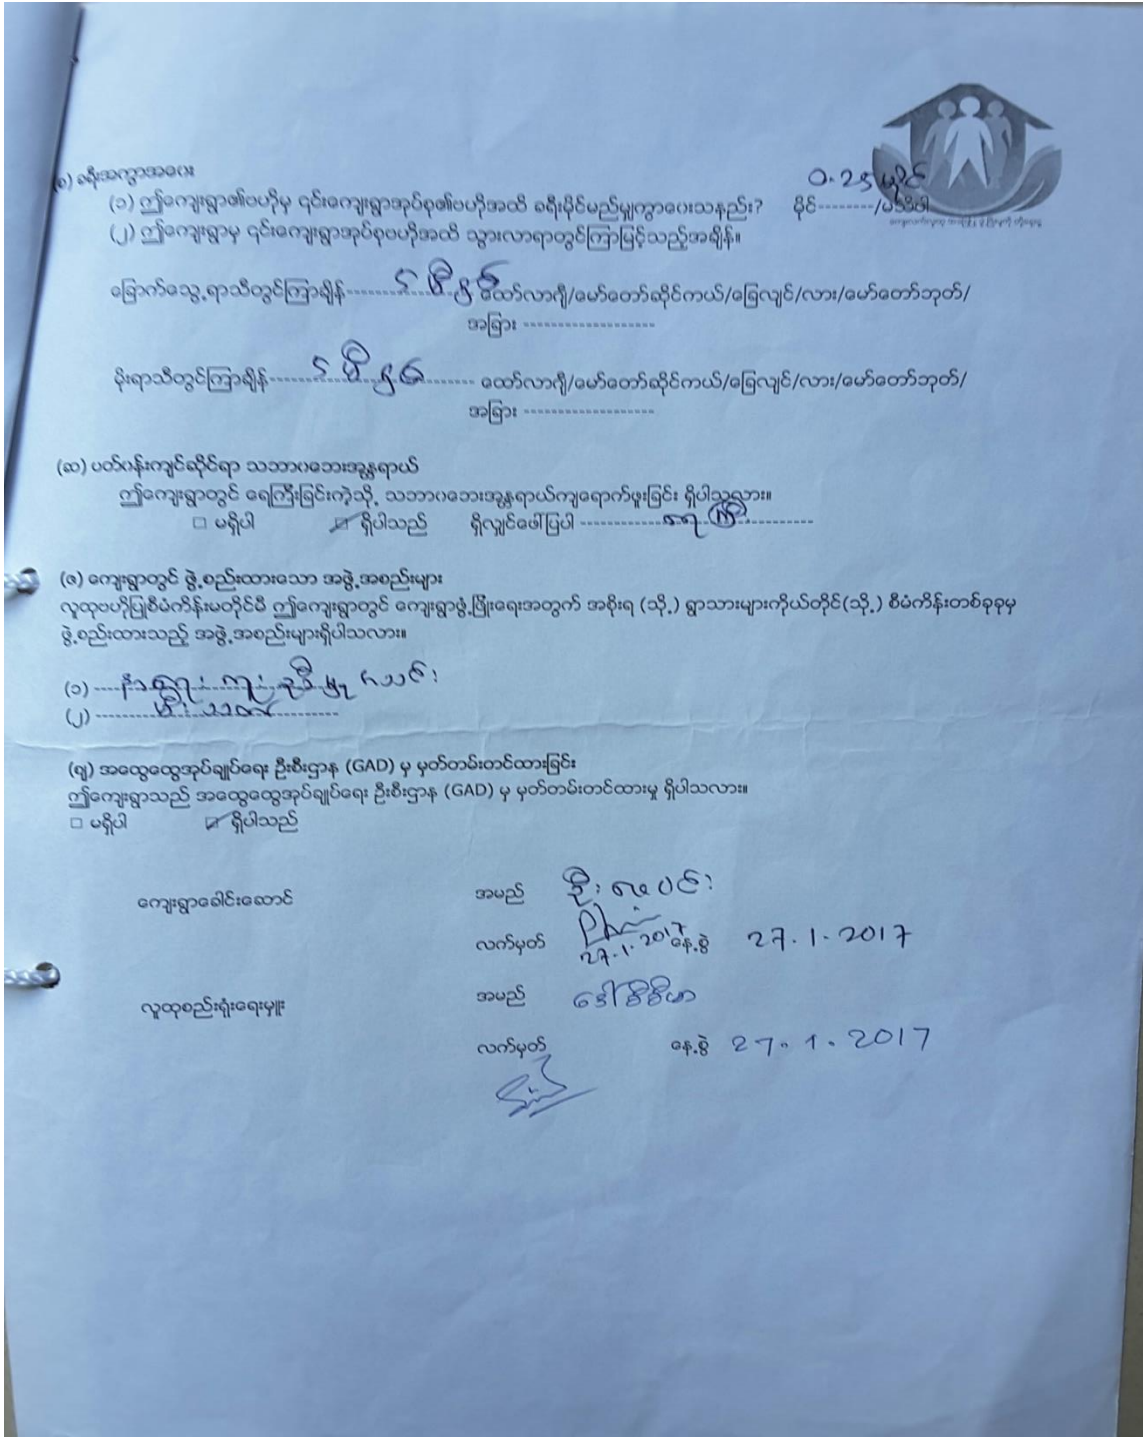 (စ) ခရီးအကွာအဝေး
(၁) ဤကျေးရွာ၏ဗဟိုမှ ၎င်းကျေးရွာအုပ်စု၏ဗဟိုအထိ ခရီးမိုင်မည်မျှကွာဝေးသနည်း? မိုင်--------/ 0.25 မိုင်
(၂) ဤကျေးရွာမှ ၎င်းကျေးရွာအုပ်စုဗဟိုအထိ သွားလာရာတွင်ကြာမြင့်သည့်အချိန်။
ခြောက်သွေ့ရာသီတွင်ကြာချိန် ၄ မိနစ် ထော်လာဂျီ/မော်တော်ဆိုင်ကယ်/ခြေလျင်/လား/မော်တော်ဘုတ်/
အခြား --------------------
မိုးရာသီတွင်ကြာချိန် ၄ မိနစ် ထော်လာဂျီ/မော်တော်ဆိုင်ကယ်/ခြေလျင်/လား/မော်တော်ဘုတ်/
အခြား --------------------
(ဆ) ပတ်ဝန်းကျင်ဆိုင်ရာ သဘာဝဘေးအန္တရာယ်
ဤကျေးရွာတွင် ရေကြီးခြင်းကဲ့သို့ သဘာဝဘေးအန္တရာယ်ကျရောက်ဖူးခြင်း ရှိပါသလား။
□ မရှိပါ ☑ ရှိပါသည် ရှိလျှင်ဖော်ပြပါ ရေကြီး
(ဇ) ကျေးရွာတွင် ဖွဲ့စည်းထားသော အဖွဲ့အစည်းများ
လူထုဗဟိုပြုစီမံကိန်းမတိုင်မီ ဤကျေးရွာတွင် ကျေးရွာဖွံ့ဖြိုးရေးအတွက် အစိုးရ (သို့) ရွာသားများကိုယ်တိုင်(သို့) စီမံကိန်းတစ်ခုခုမှ
ဖွဲ့စည်းထားသည့် အဖွဲ့အစည်းများရှိပါသလား။
(၁)
(၂) မီးသတ်
(ဈ) အထွေထွေအုပ်ချုပ်ရေး ဦးစီးဌာန (GAD) မှ မှတ်တမ်းတင်ထားခြင်း
ဤကျေးရွာသည် အထွေထွေအုပ်ချုပ်ရေး ဦးစီးဌာန (GAD) မှ မှတ်တမ်းတင်ထားမှု ရှိပါသလား။
□ မရှိပါ ☑ ရှိပါသည်
ကျေးရွာခေါင်းဆောင် အမည် ဦး
လက်မှတ် 27.1.2017 နေ့စွဲ 27.1.2017
လူထုစည်းရုံးရေးမှူး အမည် ဒေါ်
လက်မှတ် နေ့စွဲ 27.1.2017